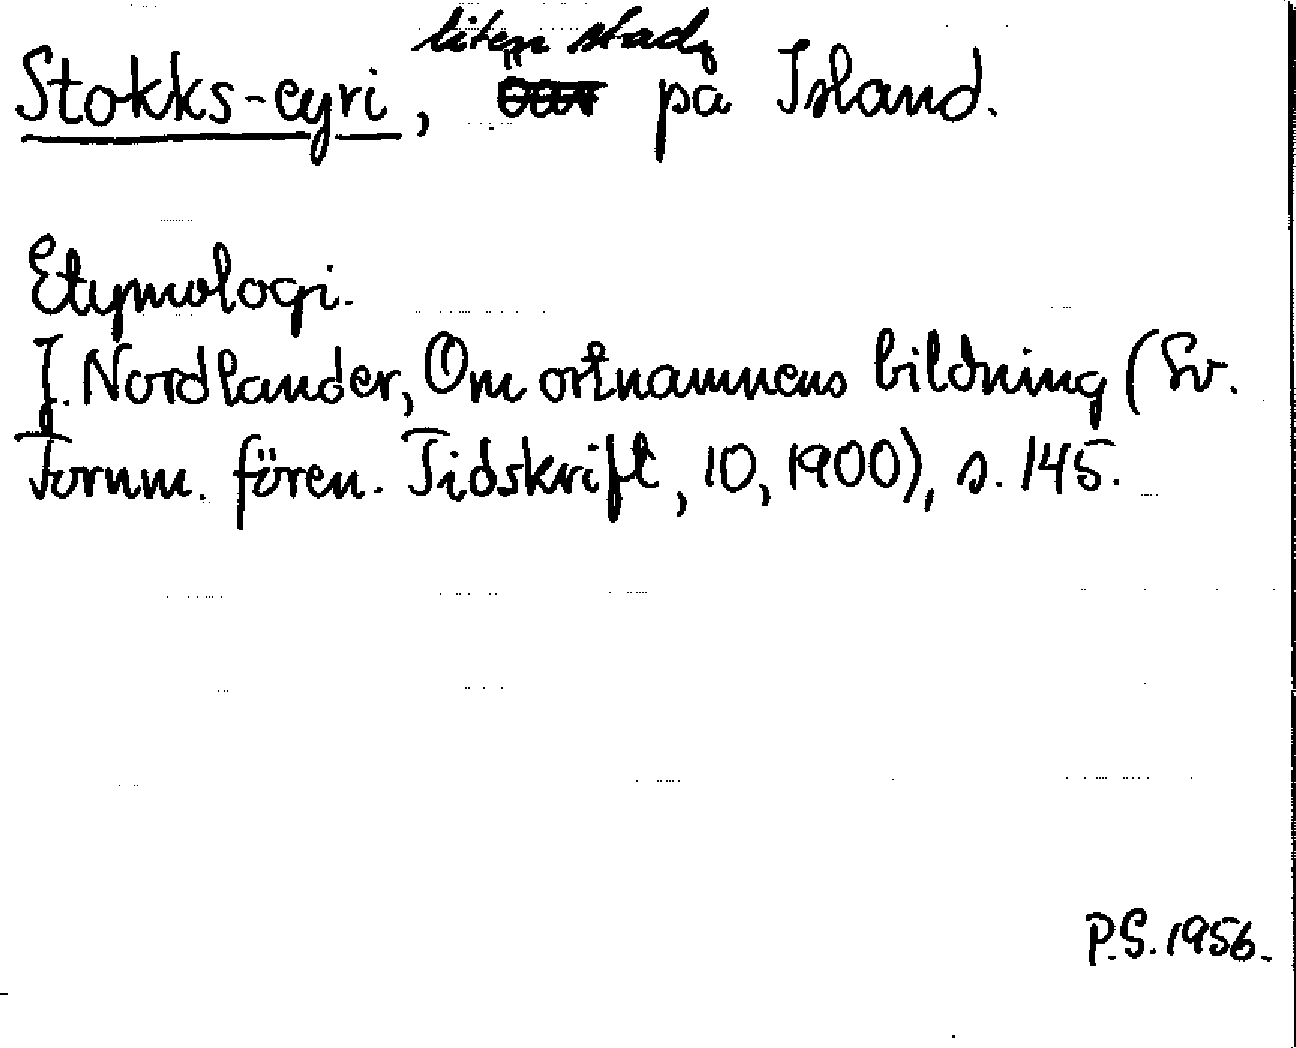 Stokks-eyri, liten stad på Island.
Etymologi.
J. Nordlander, Om ortnamnens bildning (Sv.
Fornm. fören. Tidskrift, 10, 1900), s. 145.
P.S. 1956.